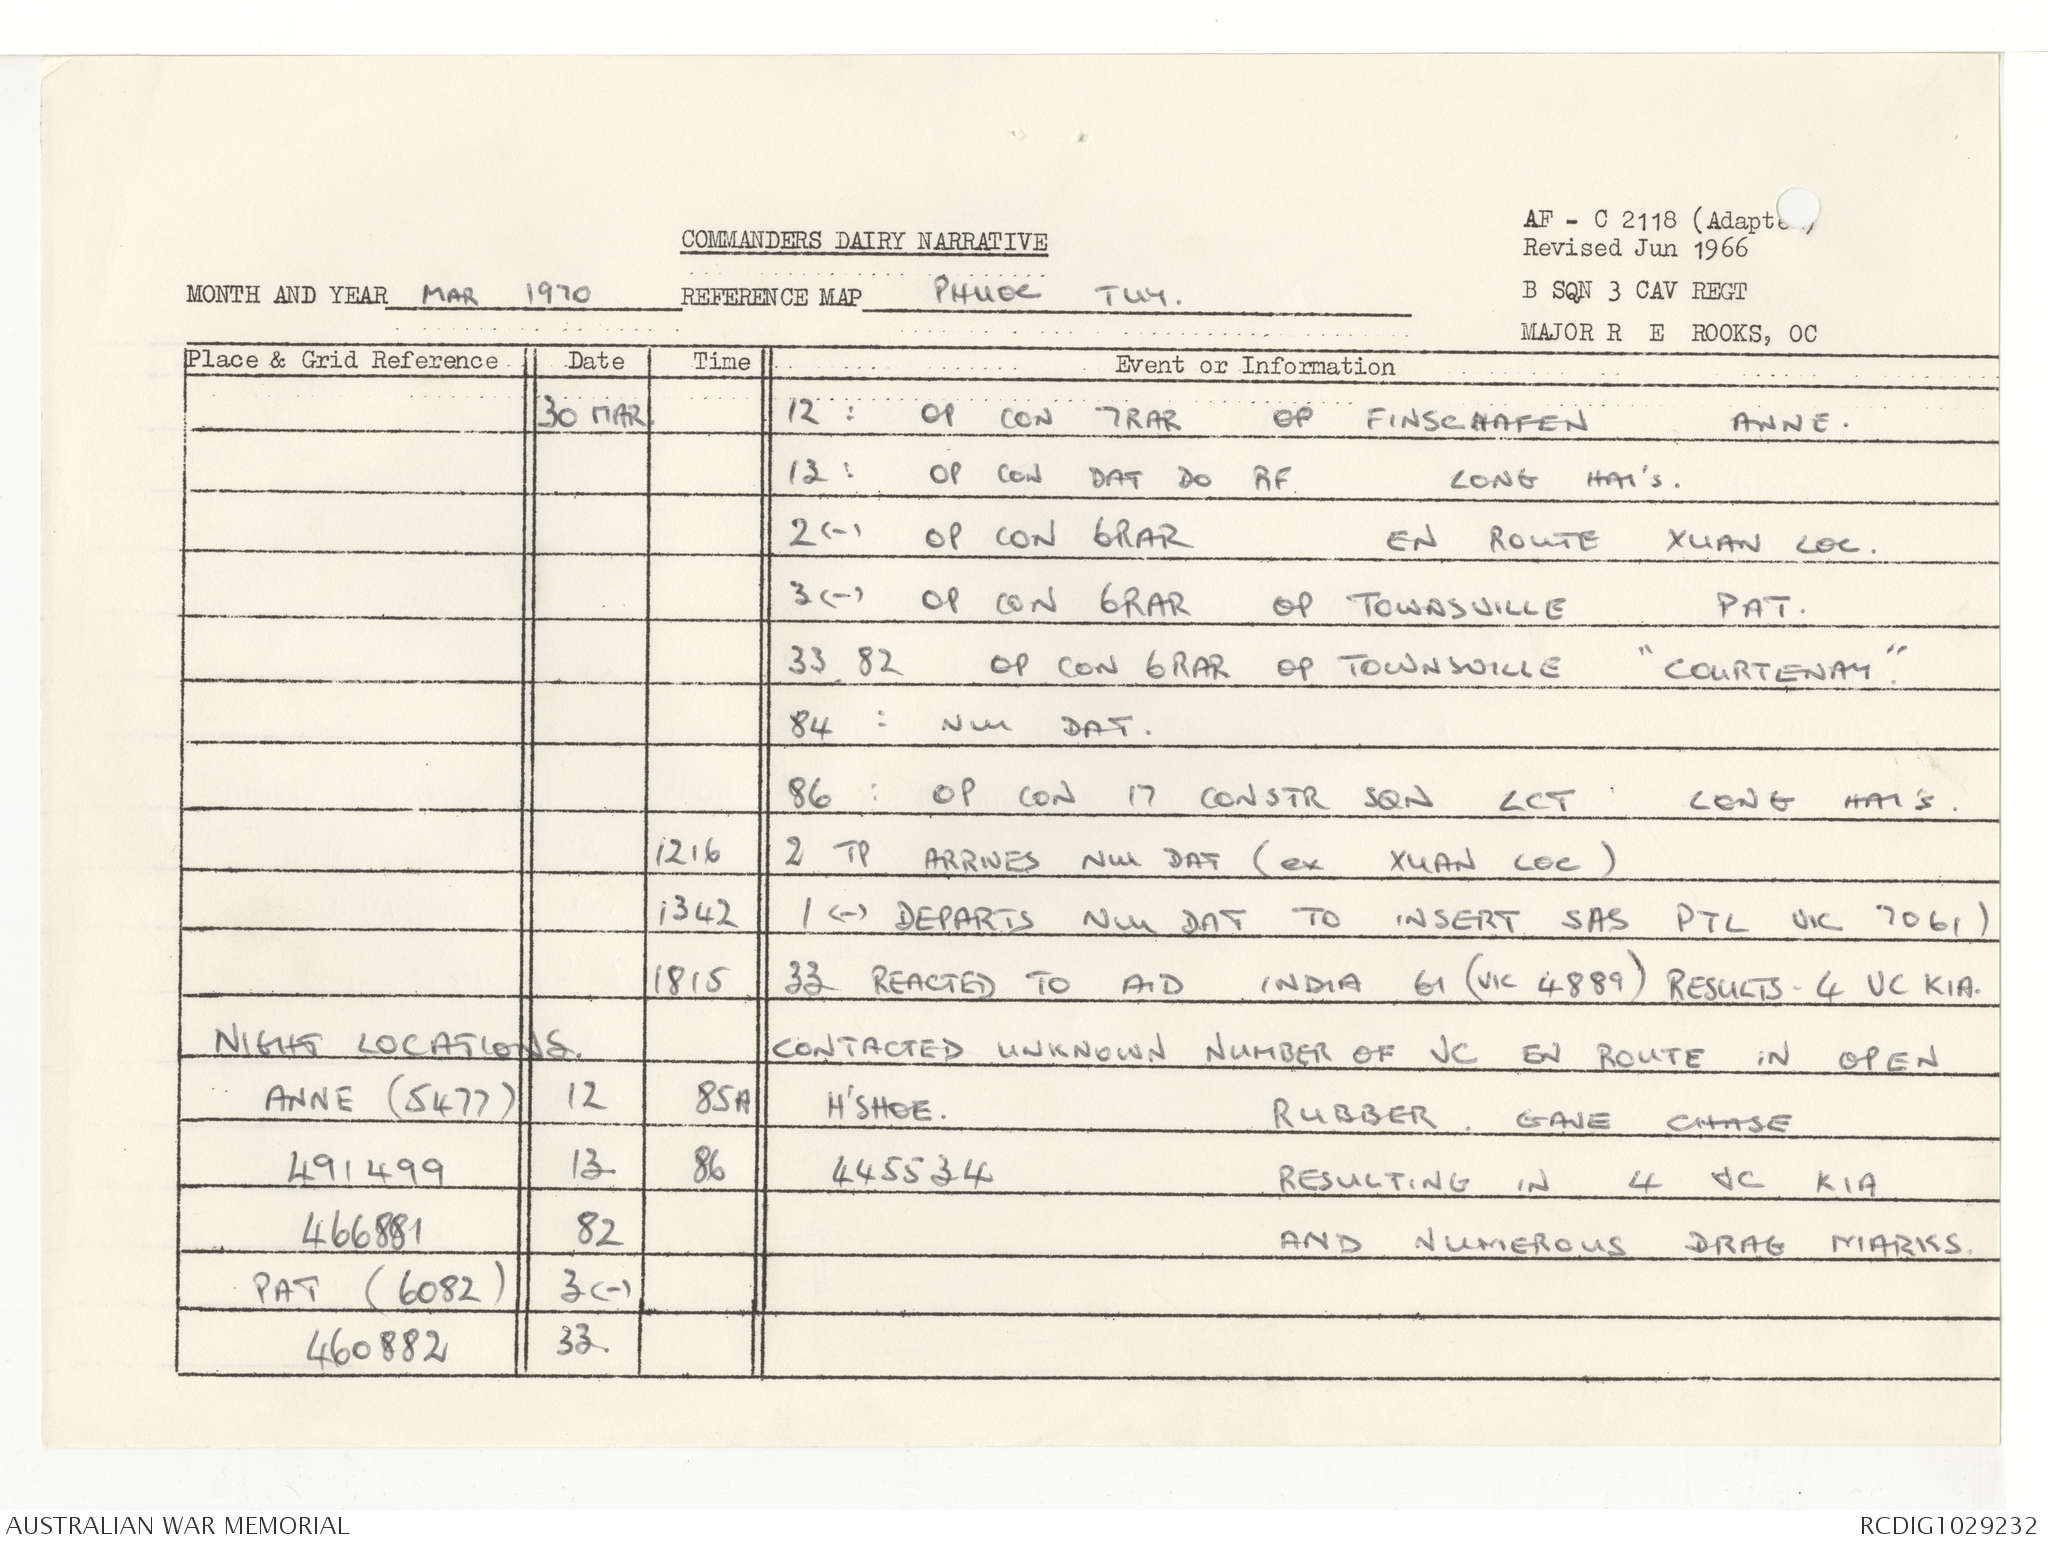 AF - C 2118 (Adapte
COMMANDERS DAIRY NARRATIVE
Revised Jun 1966
MONTH AND YEAR MAR 1970 REFERENCE MAP PHUOC TUY.
B SQN 3 CAV REGT
MAJOR R E ROOKS, OC
Place & Grid Reference Date Time Event or Information
30 MAR 12 : OP CON 7RAR OP FINSCHAFEN ANNE.
13 : OP CON DAT DO RF LONG HAI'S.
2 (-) OP CON 6RAR EN ROUTE XUAN LOC.
3 (-) OP CON 6RAR OP TOWNSVILLE PAT.
33 82 OP CON 6RAR OP TOWNSVILLE "COURTENAY".
84 : NUI DAT.
86 : OP CON 17 CONSTR SQN LCT LONG HAI'S.
1216 2 TP ARRIVES NUI DAT (ex XUAN LOC)
1342 1 (-) DEPARTS NUI DAT TO INSERT SAS PTL VIC 7061)
1815 33 REACTED TO AID INDIA 61 (VIC 4889) RESULTS - 4 VC KIA.
NIGHT LOCATIONS. CONTACTED UNKNOWN NUMBER OF VC EN ROUTE IN OPEN
ANNE (5477) 12 85A H'SHOE. RUBBER. GAVE CHASE
491499 13 86 445534 RESULTING IN 4 VC KIA
466881 82 AND NUMEROUS DRAG MARKS.
PAT (6082) 3 (-)
460882 33.
AUSTRALIAN WAR MEMORIAL RCDIG1029232